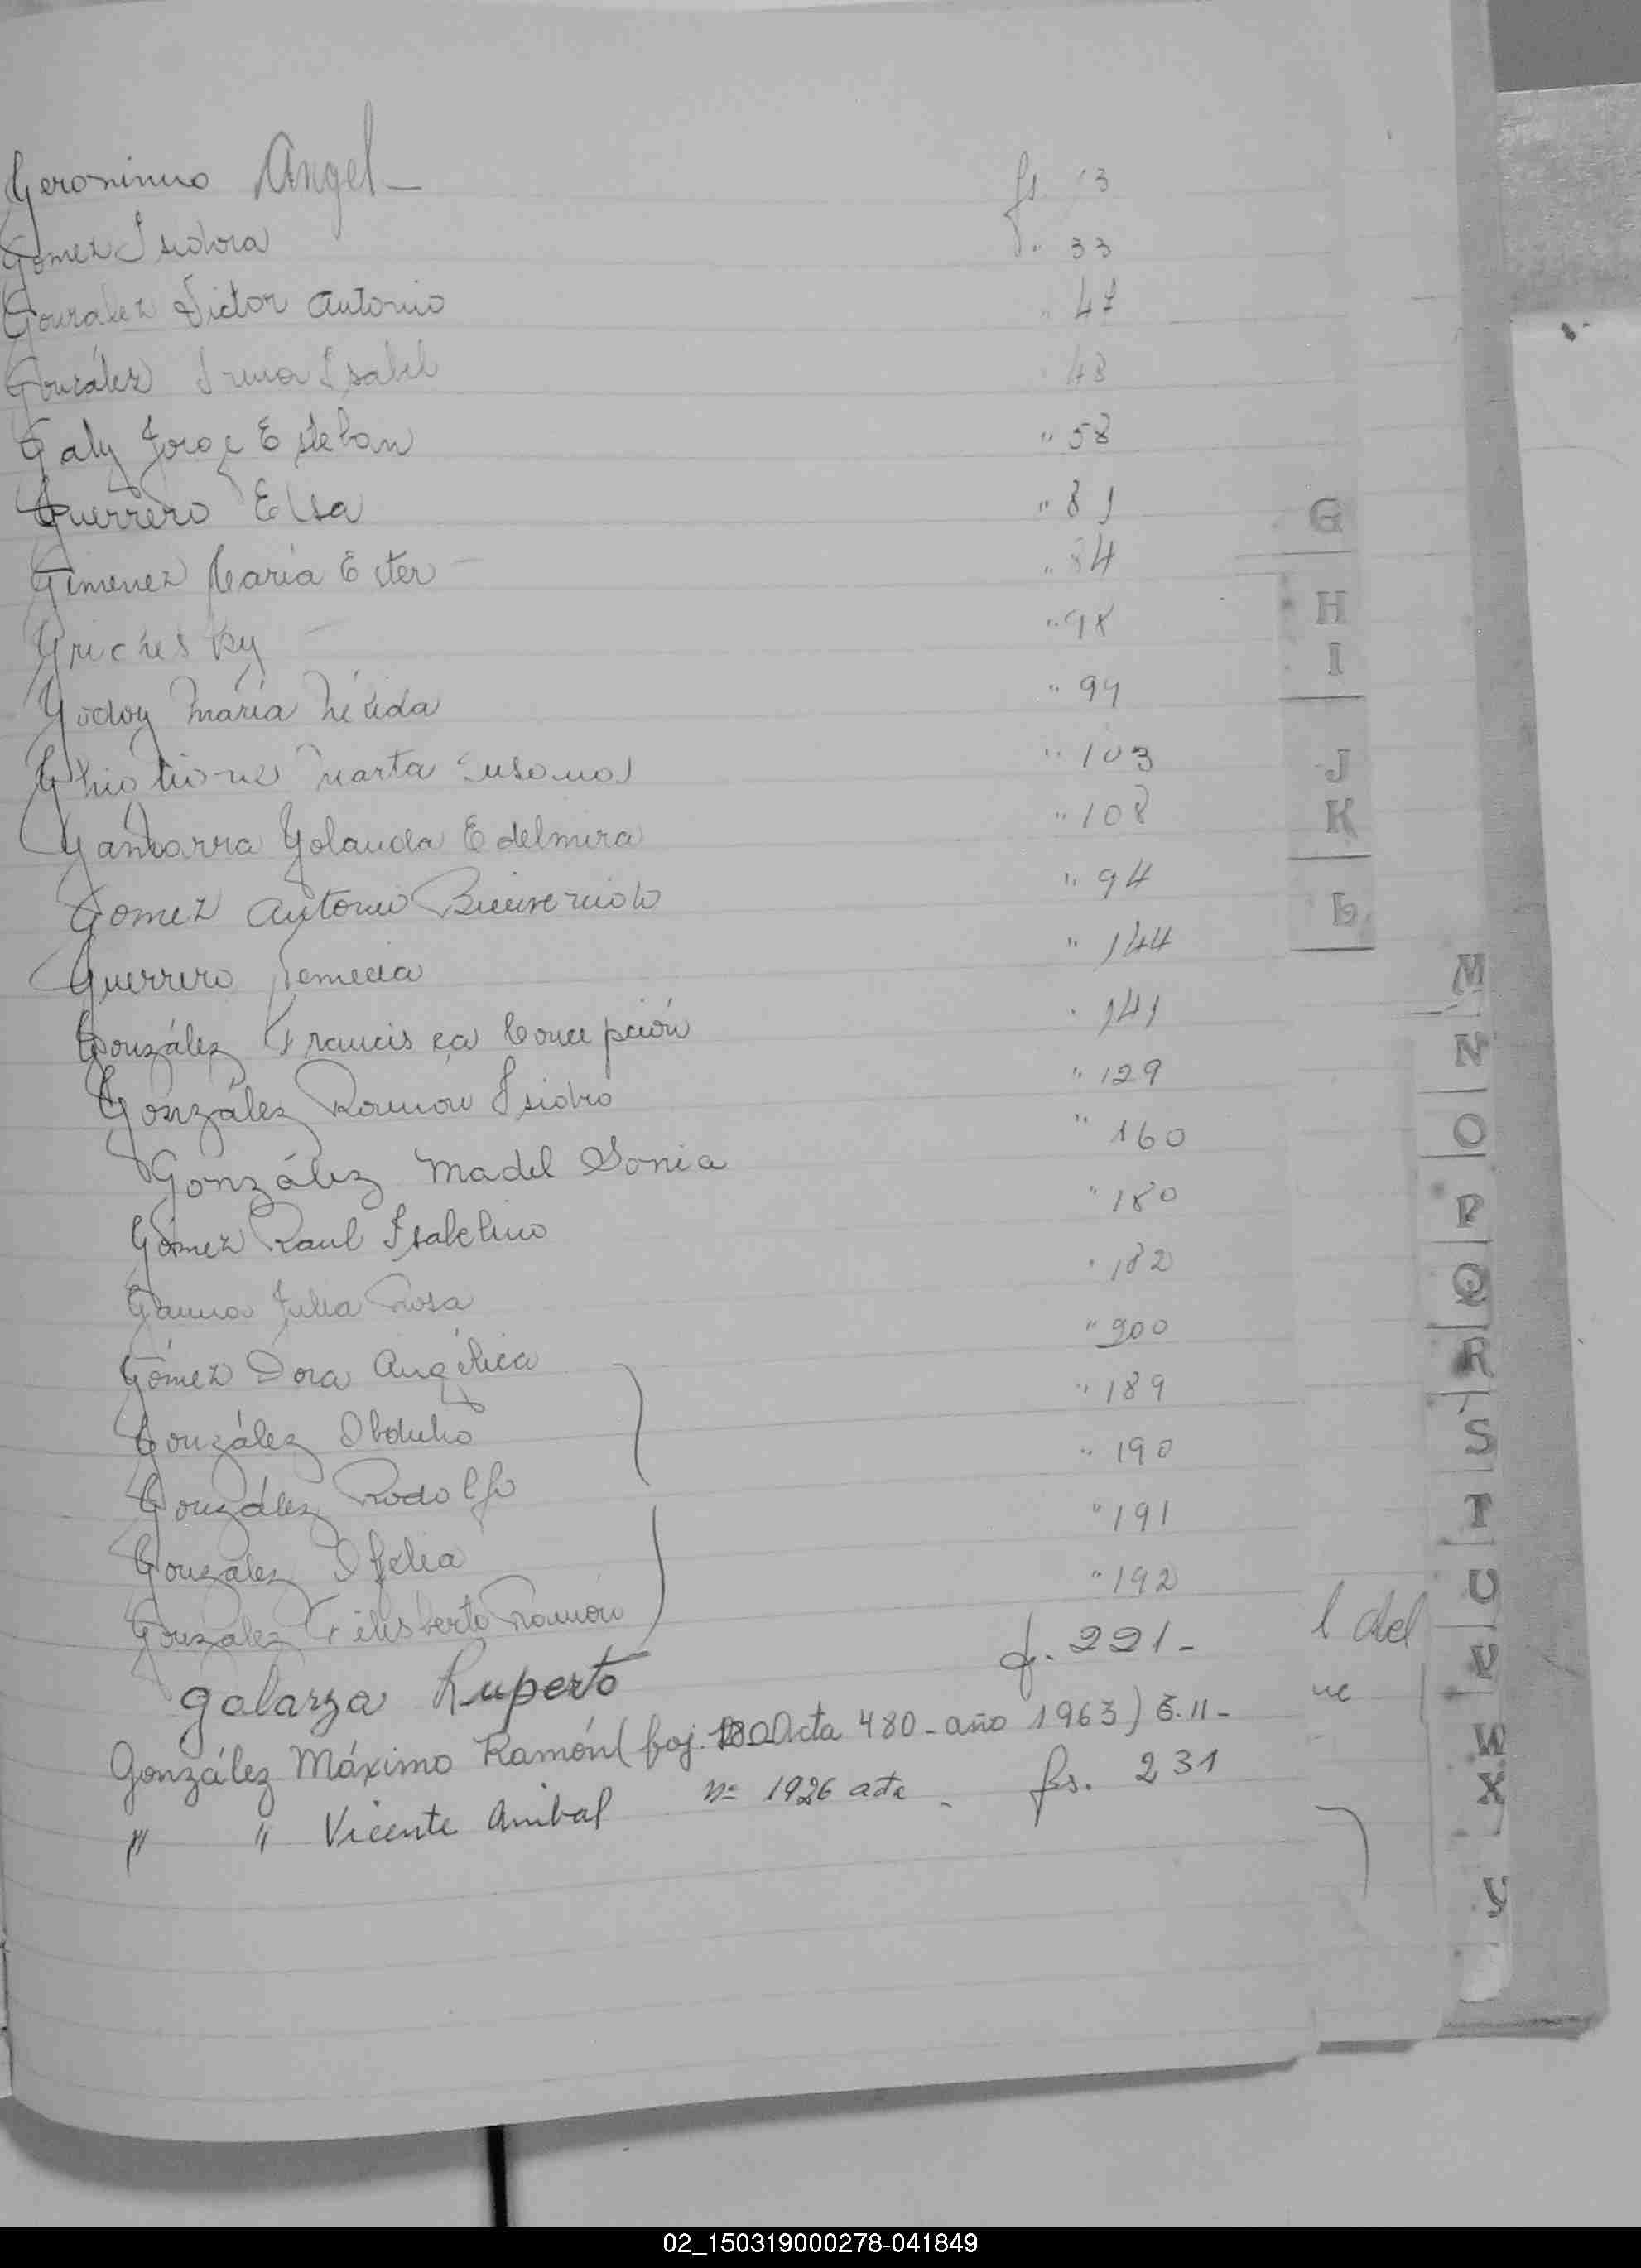 Geronimo Angel - fs 13
Gomez Isidora f. " 33
Gonzalez Victor Antonio " 47
González Irma Isabel " 48
Galy Jorge Esteban " 58
Guerrero Elsa " 81
Gimenez María Ester - " 84
" 98
Godoy María Nélida " 99
Marta " 103
Yolanda Edelmira " 108
Gomez Antonio " 94
Guerrero " 144
González Francisca Concepción " 141
González Ramón Isidro " 129
González Madel Sonia " 160
Gómez Raul Isabelino " 180
Julia Rosa " 182
Gómez Dora Angélica " 200
González Obdulio " 189
González Rodolfo " 190
González Ofelia " 191
González Filisberto Ramón " 192
galarza Ruperto f. 221-
González Máximo Ramón ( foj. Acta 480 - año 1963)
" " Vicente Anibal Nº 1926 acta - fs. 231
l del
ue
G
H
I
J
K
L
M
N
O
P
Q
R
S
T
U
V
W
X
Y
02_150319000278-041849